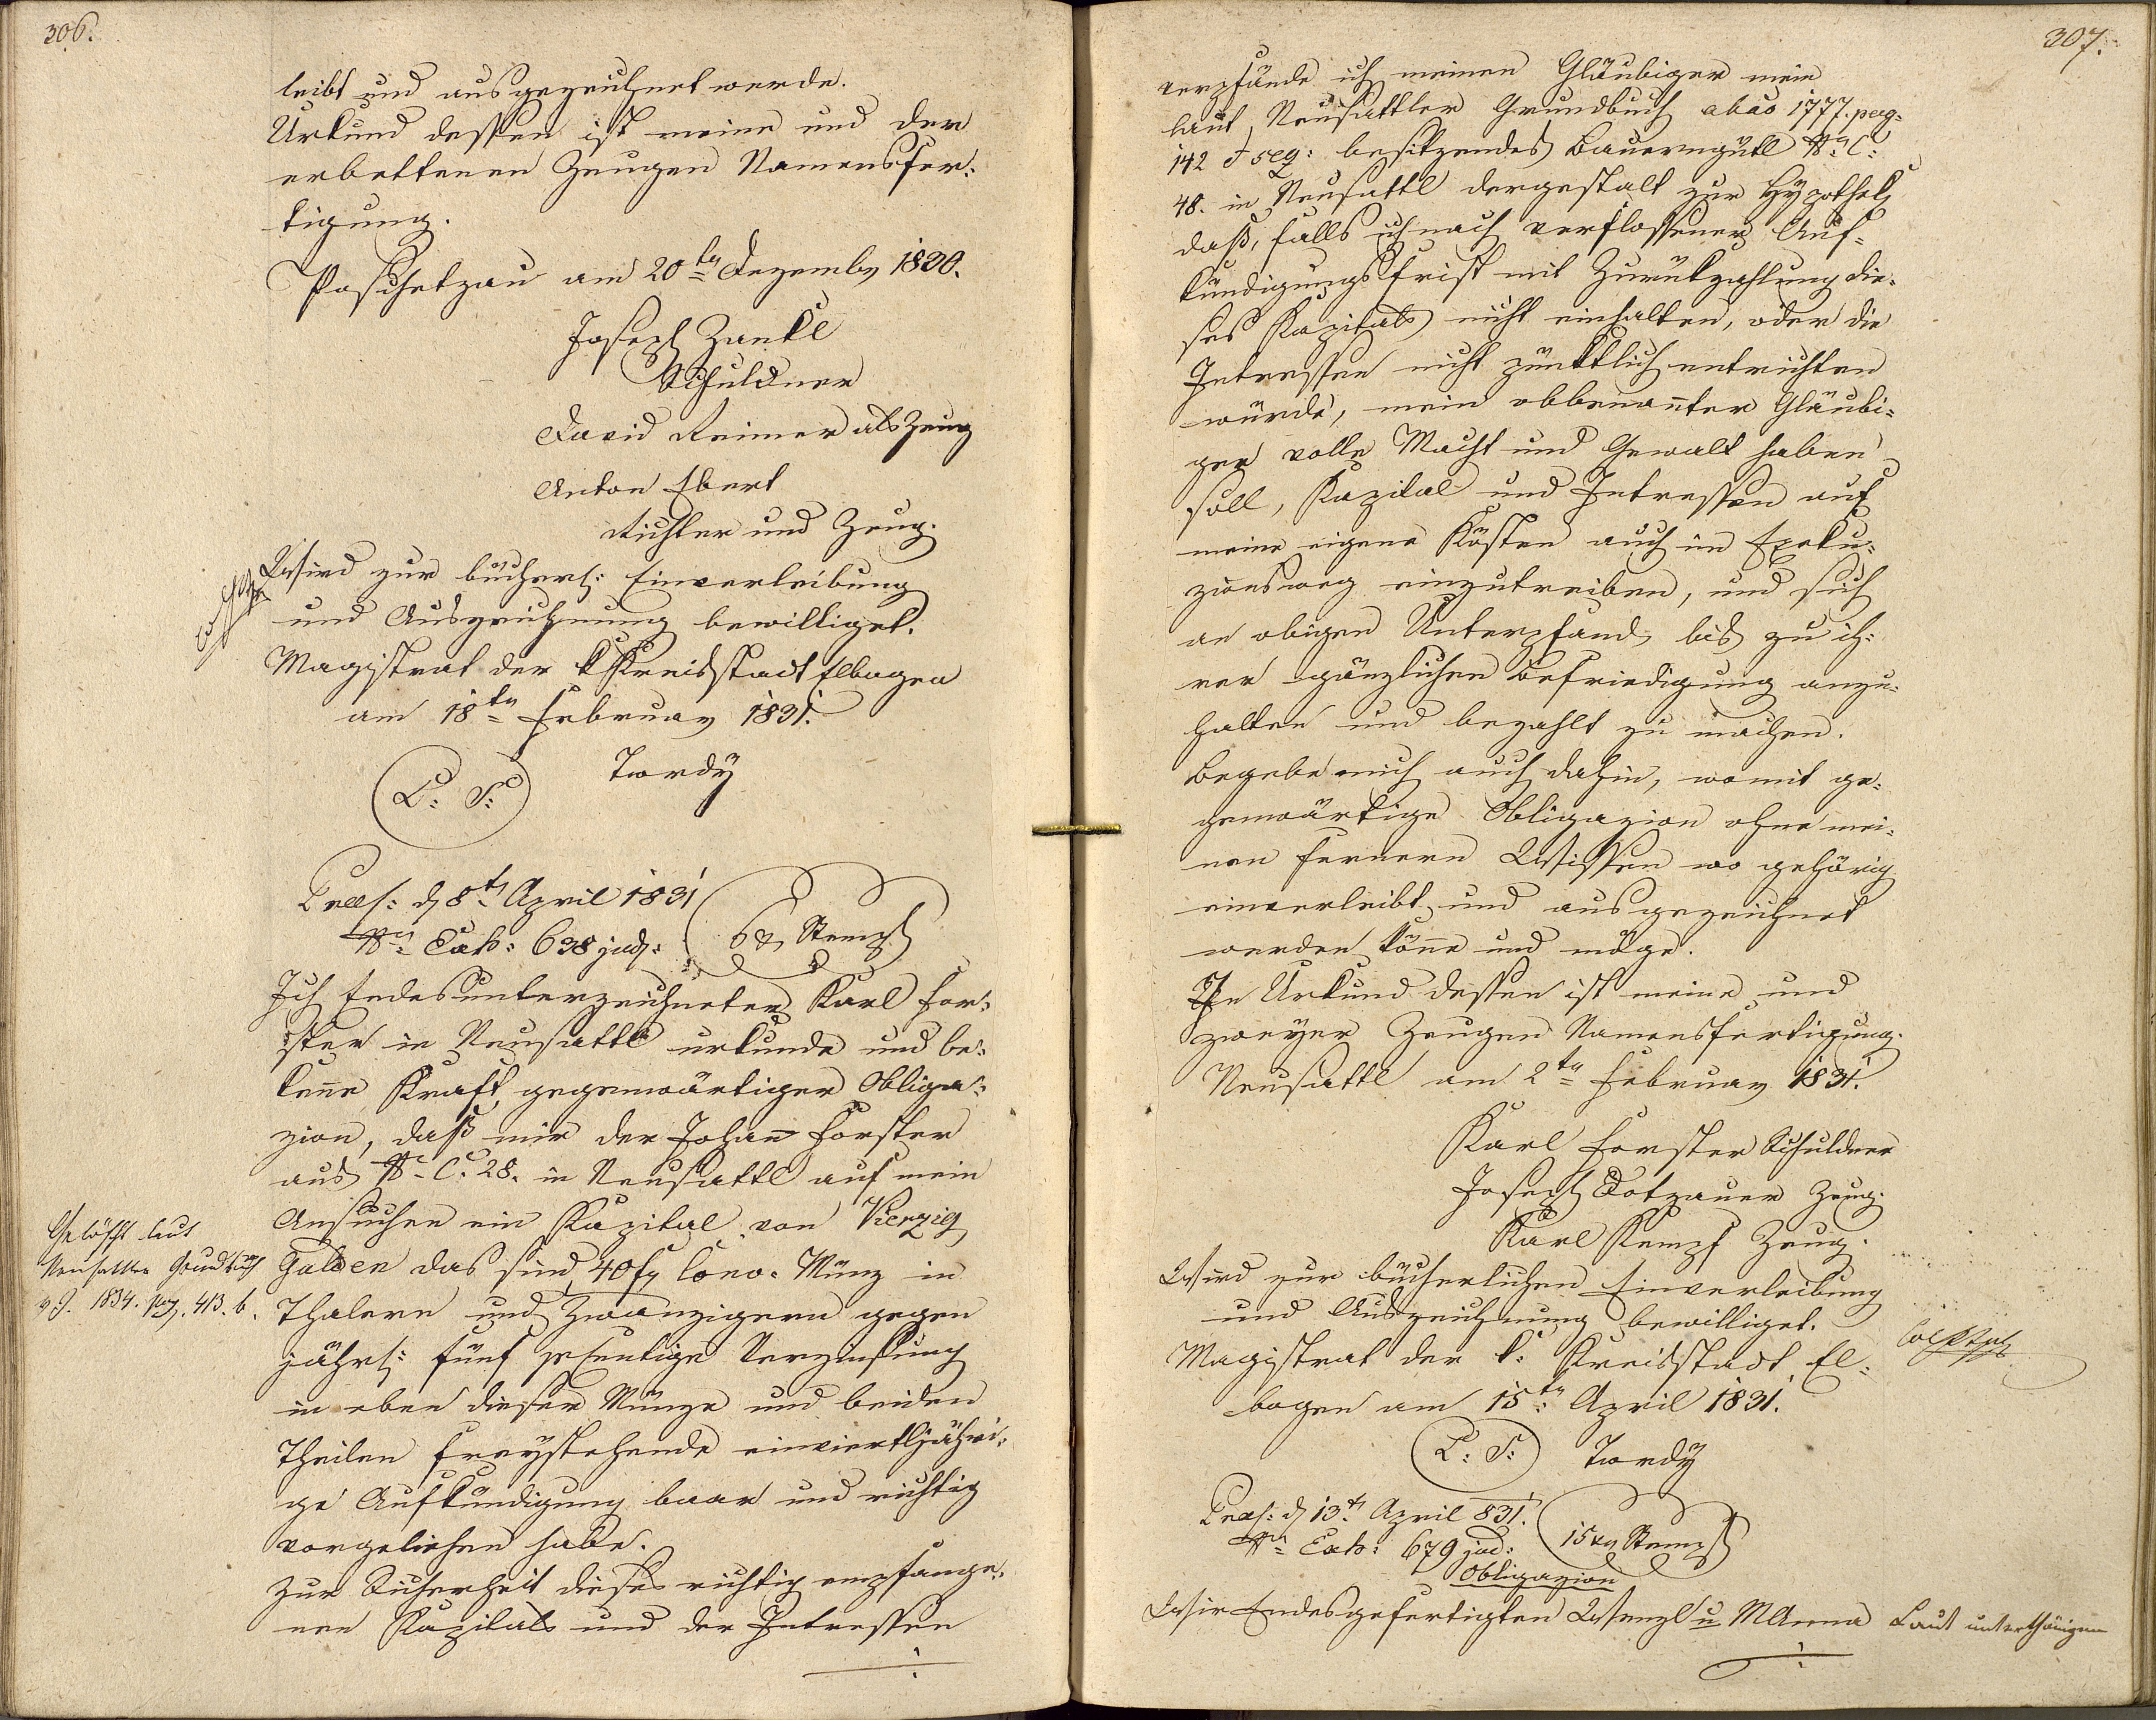 306.
leibt und ausgezeichnet werde.
Urkund dessen ist meine und der
erbettenen Zeugen Namensfer=
tigung.
Poschetzau am 20ten Dezember 1830.
Joseph Zankl
Schuldner
David Reimer als Zeug
Anton Ebert
Richter und Zeug.
Wird zur bücherl: Einverleibung
und Auszeichnung bewilliget.
Magistrat der k Kreisstadt Elbogen
am 18ten Februar 1831.
L: S: Twrdy
Praes: d 8t April 1831
Nro Exh: 638 jud: 6 x Stempl
Ich Endesunterzeichneter Karl For=
ster in Neusattl urkunde und be=
kenne Kraft gegenwärtiger Obliga=
zion, daß mir der Johann Forster
aus N. C. 28. in Neusattl auf mein
Ansuchen ein Kapital von Vierzig
Gulden das sind 40 fl Conv. Münz in
Thalern und Zwanzigern gegen
jährl: fünf prcentige Verzinsung
in eben dieser Münze und beiden
Theilen freystehende einvierteljähri=
ge Aufkündigung baar und richtig
vorgeliehen habe.
Zur Sicherheit dieses richtig empfange=
nen Kapitals und der Intressen
Gelöscht laut
Neusattler Grundbuch
v. J. 1834. pag. 413. b.
307.
verpfände ich meinen Gläubiger mein
laut Neusattler Grundbuch ab ao 1777. pag=
142 et seq: besitzendes Bauerngütl N. C:
48. in Neusattl dergestalt zur Hypothek
daß, falls ich nach verflossener Auf=
kündigungsfrist mit Zurückzahlung die=
ses Kapitals nicht einhalten, oder die
Intressen nicht pünktlich entrichten
würde, mein obbenannter Gläubi=
ger volle Macht und Gewalt haben
soll, Kapital und Intressen auf
meine eigene Kösten auch im Exeku=
zionsweg einzutreiben, und sich
an obigen Unterpfand bis zu ih=
rer gänzlichen Befriedigung anzu=
halten und bezahlt zu machen.
Begebe mich auch dahin, womit ge=
genwärtige Obligazion ohne mei=
nen fernern Wissen wo gehörig
einverleibt und ausgezeichnet
werden könne und möge.
In Urkund dessen ist meine und
zweyer Zeugen Namensfertigung.
Neusattl am 2ten Februar 1831.
Karl Forster Schuldner
Joseph Dotzauer Zeug.
Karl Kempf Zeug.
Wird zur bücherlichen Einverleibung
und Auszeichnung bewilliget.
Magistrat der k: Kreisstadt El=
bogen am 15ten April 1831.
L: S: Twrdy
Praes: d 13t April 831.
Nro Exh: 679 jud: 15 xr Stempl
Obligazion
Wir Endesgefertigten Wenzl u MAnna Laut unterthänigen